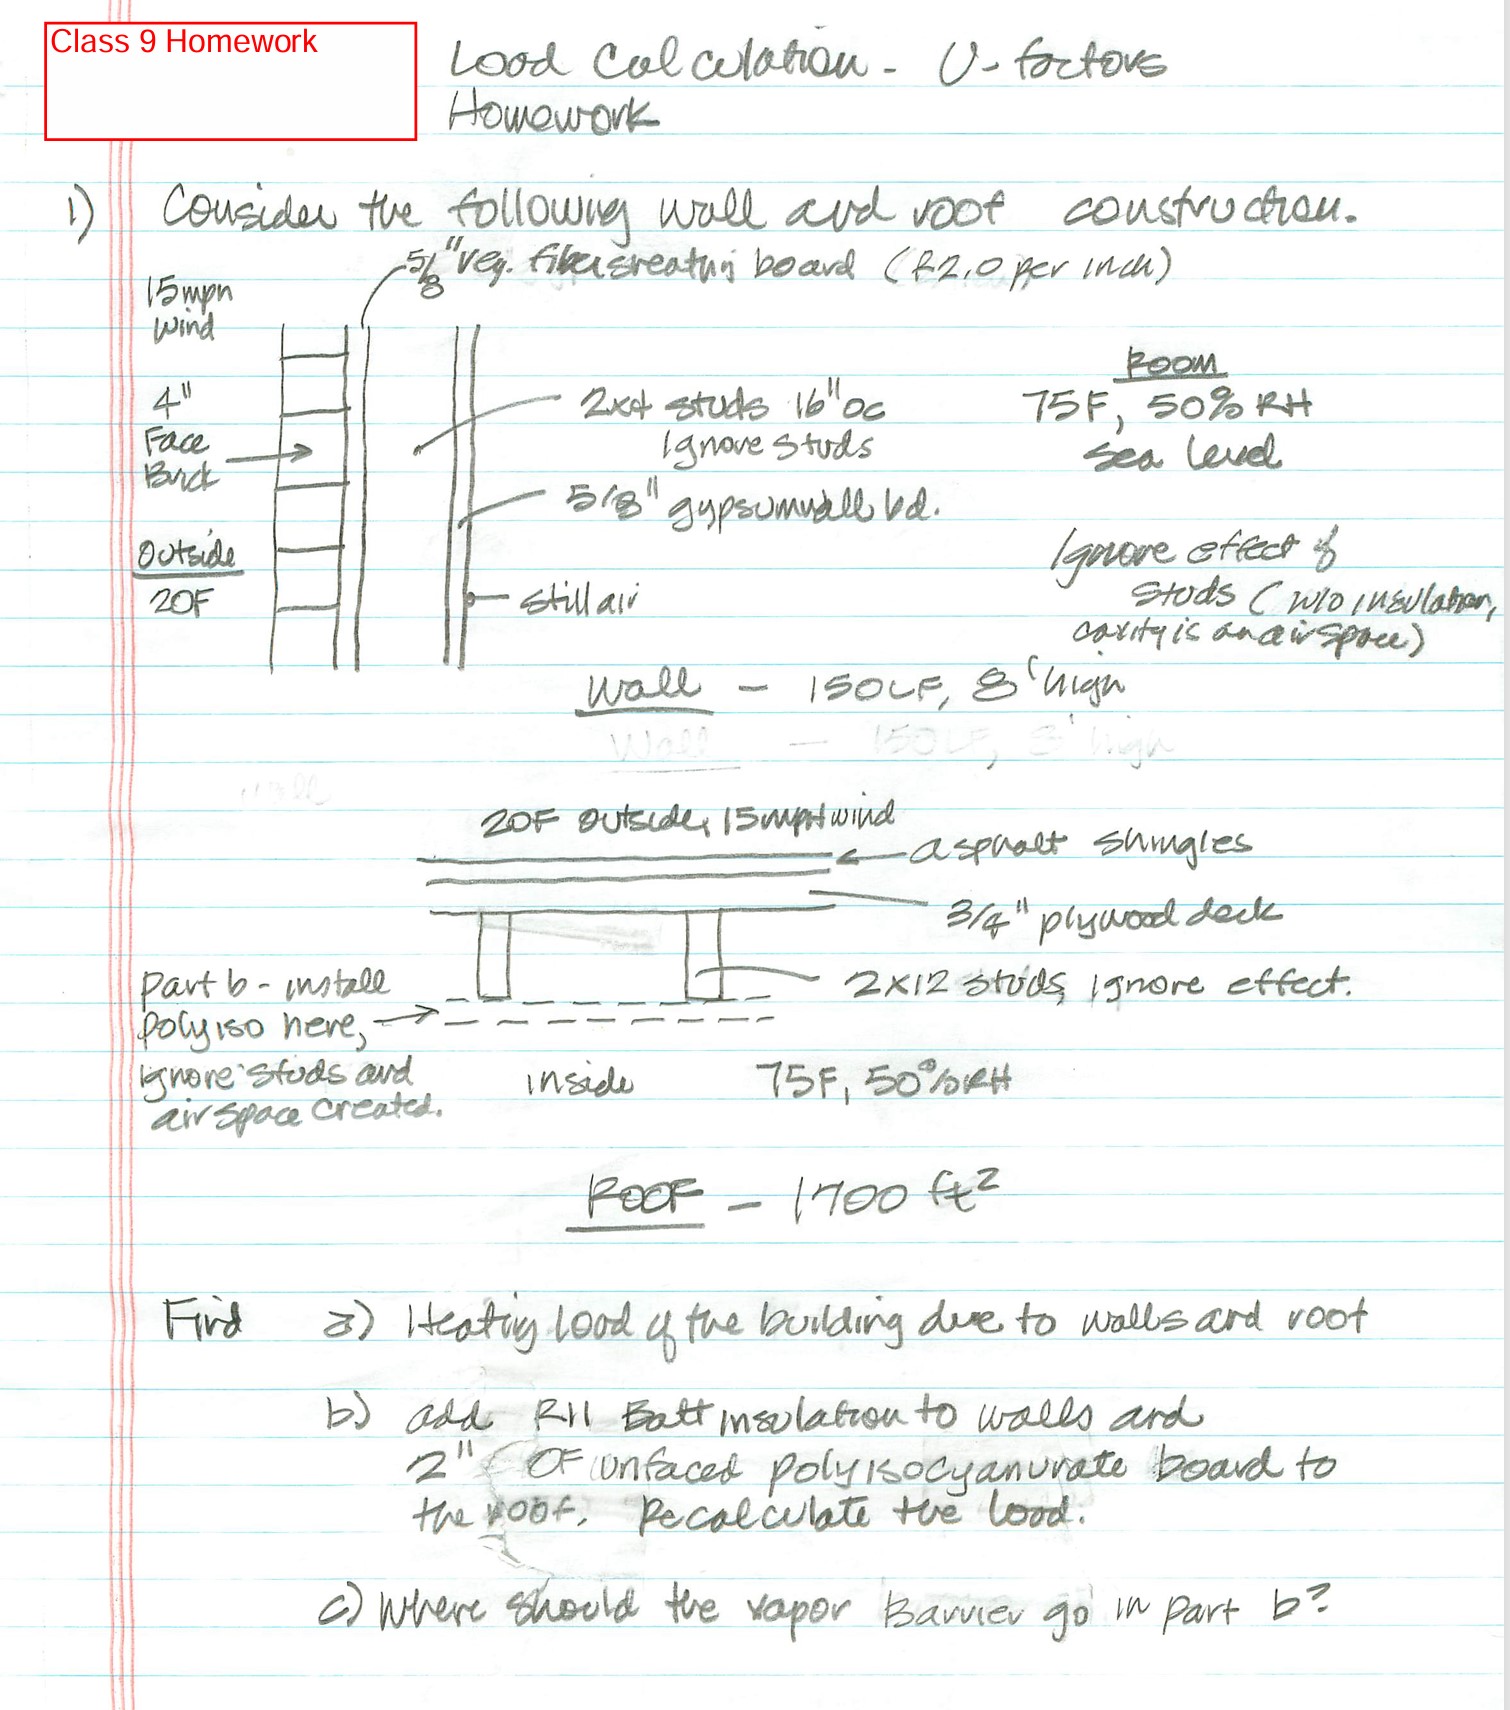 Class 9 Homework
Load Calculation - U-factors
Homework
1) Consider the following wall and roof construction.
5/8" veg. fiber sheathing board (R2.0 per inch)
15mph
Wind
4"
Face
Brick
Outside
20F
2x4 studs 16" OC
Ignore studs
5/8" gypsum wall bd.
still air
Room
75F, 50% RH
Sea Level
Ignore effect of
studs (w/o insulation,
cavity is an air space)
Wall - 150LF, 8' high
Wall - 150LF, 8' high
20F outside, 15mph wind
asphalt shingles
3/4" plywood deck
2x12 studs, ignore effect.
part b - install
polyiso here,
ignore studs and
air space created.
inside 75F, 50% RH
ROOF - 1700 ft²
Find a) Heating load of the building due to walls and roof
b) add R11 Batt insulation to walls and
2" OF unfaced polyisocyanurate board to
the roof. Recalculate the load.
c) Where should the vapor Barrier go in part b?